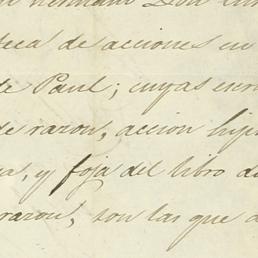 hermano Don
teca de acciones en
de Paul; cuyas escri
de razon, accion hipo
, y foja del libro de
razon, son las que